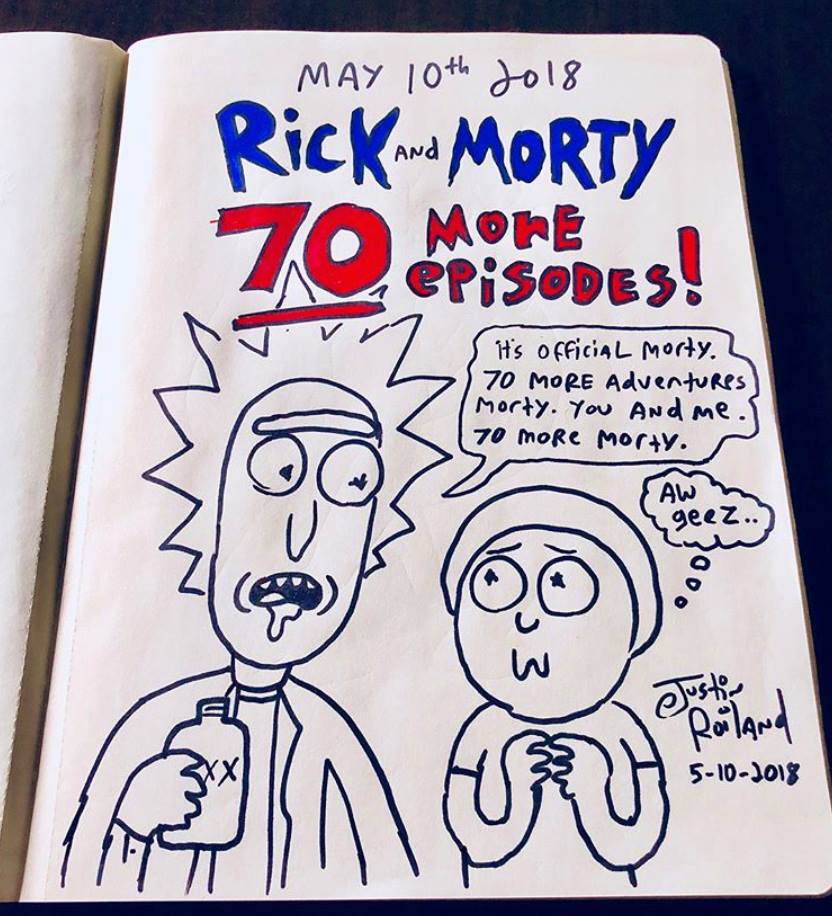 MAY 10th 2018
RicK AND MORTY
70 MORE
EPiSODES!
it's official Morty.
70 MORE Adventures
Morty. You And me.
70 more Morty.
AW
geez..
XX
Justin
Roiland
5-10-2018